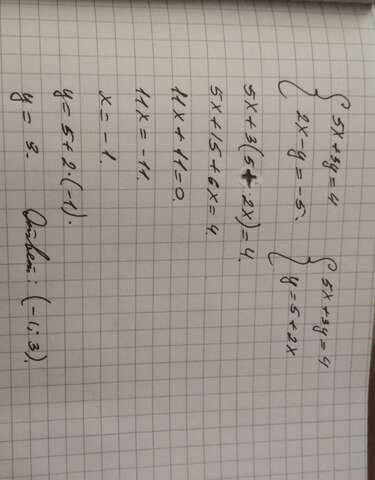 { 5x+3y=4 { 5x+3y=4
2x-y=-5. y=5+2x
5x+3(5+2x)=4.
5x+15+6x=4.
11x+11=0.
11x=-11.
x=-1.
y=5+2·(-1).
y=3. Ответ: (-1; 3).